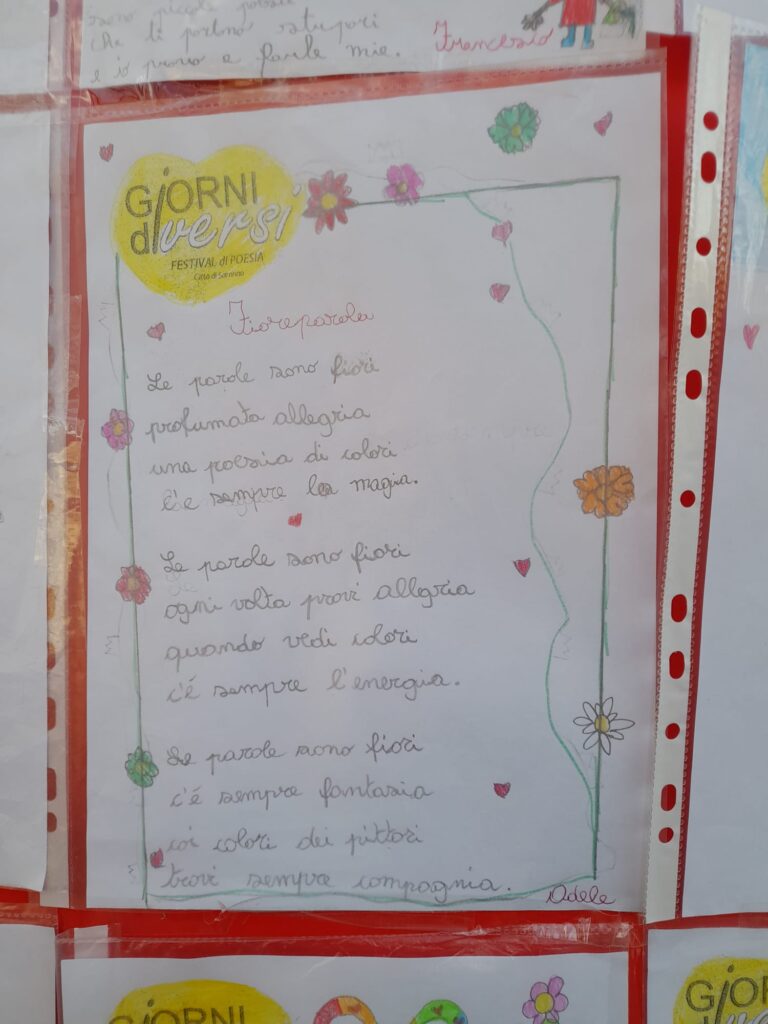 sono piccole poesie
che ti portano stupori
e io provo a farle mie.
Francesco
GiORNI
diversi
FESTIVAL di POESIA
Città di Saronno
Fioreparola
Le parole sono fiori
profumata allegria
una poesia di colori
c'è sempre la magia.
Le parole sono fiori
ogni volta provi allegria
quando vedi colori
c'é sempre l'energia.
Le parole sono fiori
c'é sempre fantasia
coi colori dei pittori
trovi sempre compagnia.
Adele
GiORNI
GiORNI